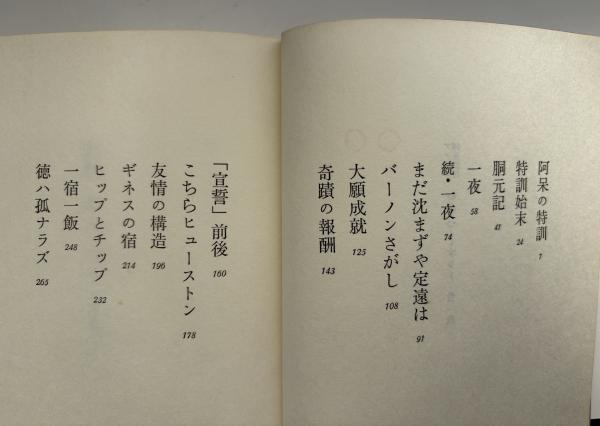 阿呆の特訓 7
特訓始末 24
胴元記 41
一夜 58
続・一夜 74
まだ沈まずや定遠は 91
バーノンさがし 108
大願成就 125
奇蹟の報酬 143
「宣誓」前後 160
こちらヒューストン 178
友情の構造 196
ギネスの宿 214
ヒップとチップ 232
一宿一飯 248
徳ハ孤ナラズ 265